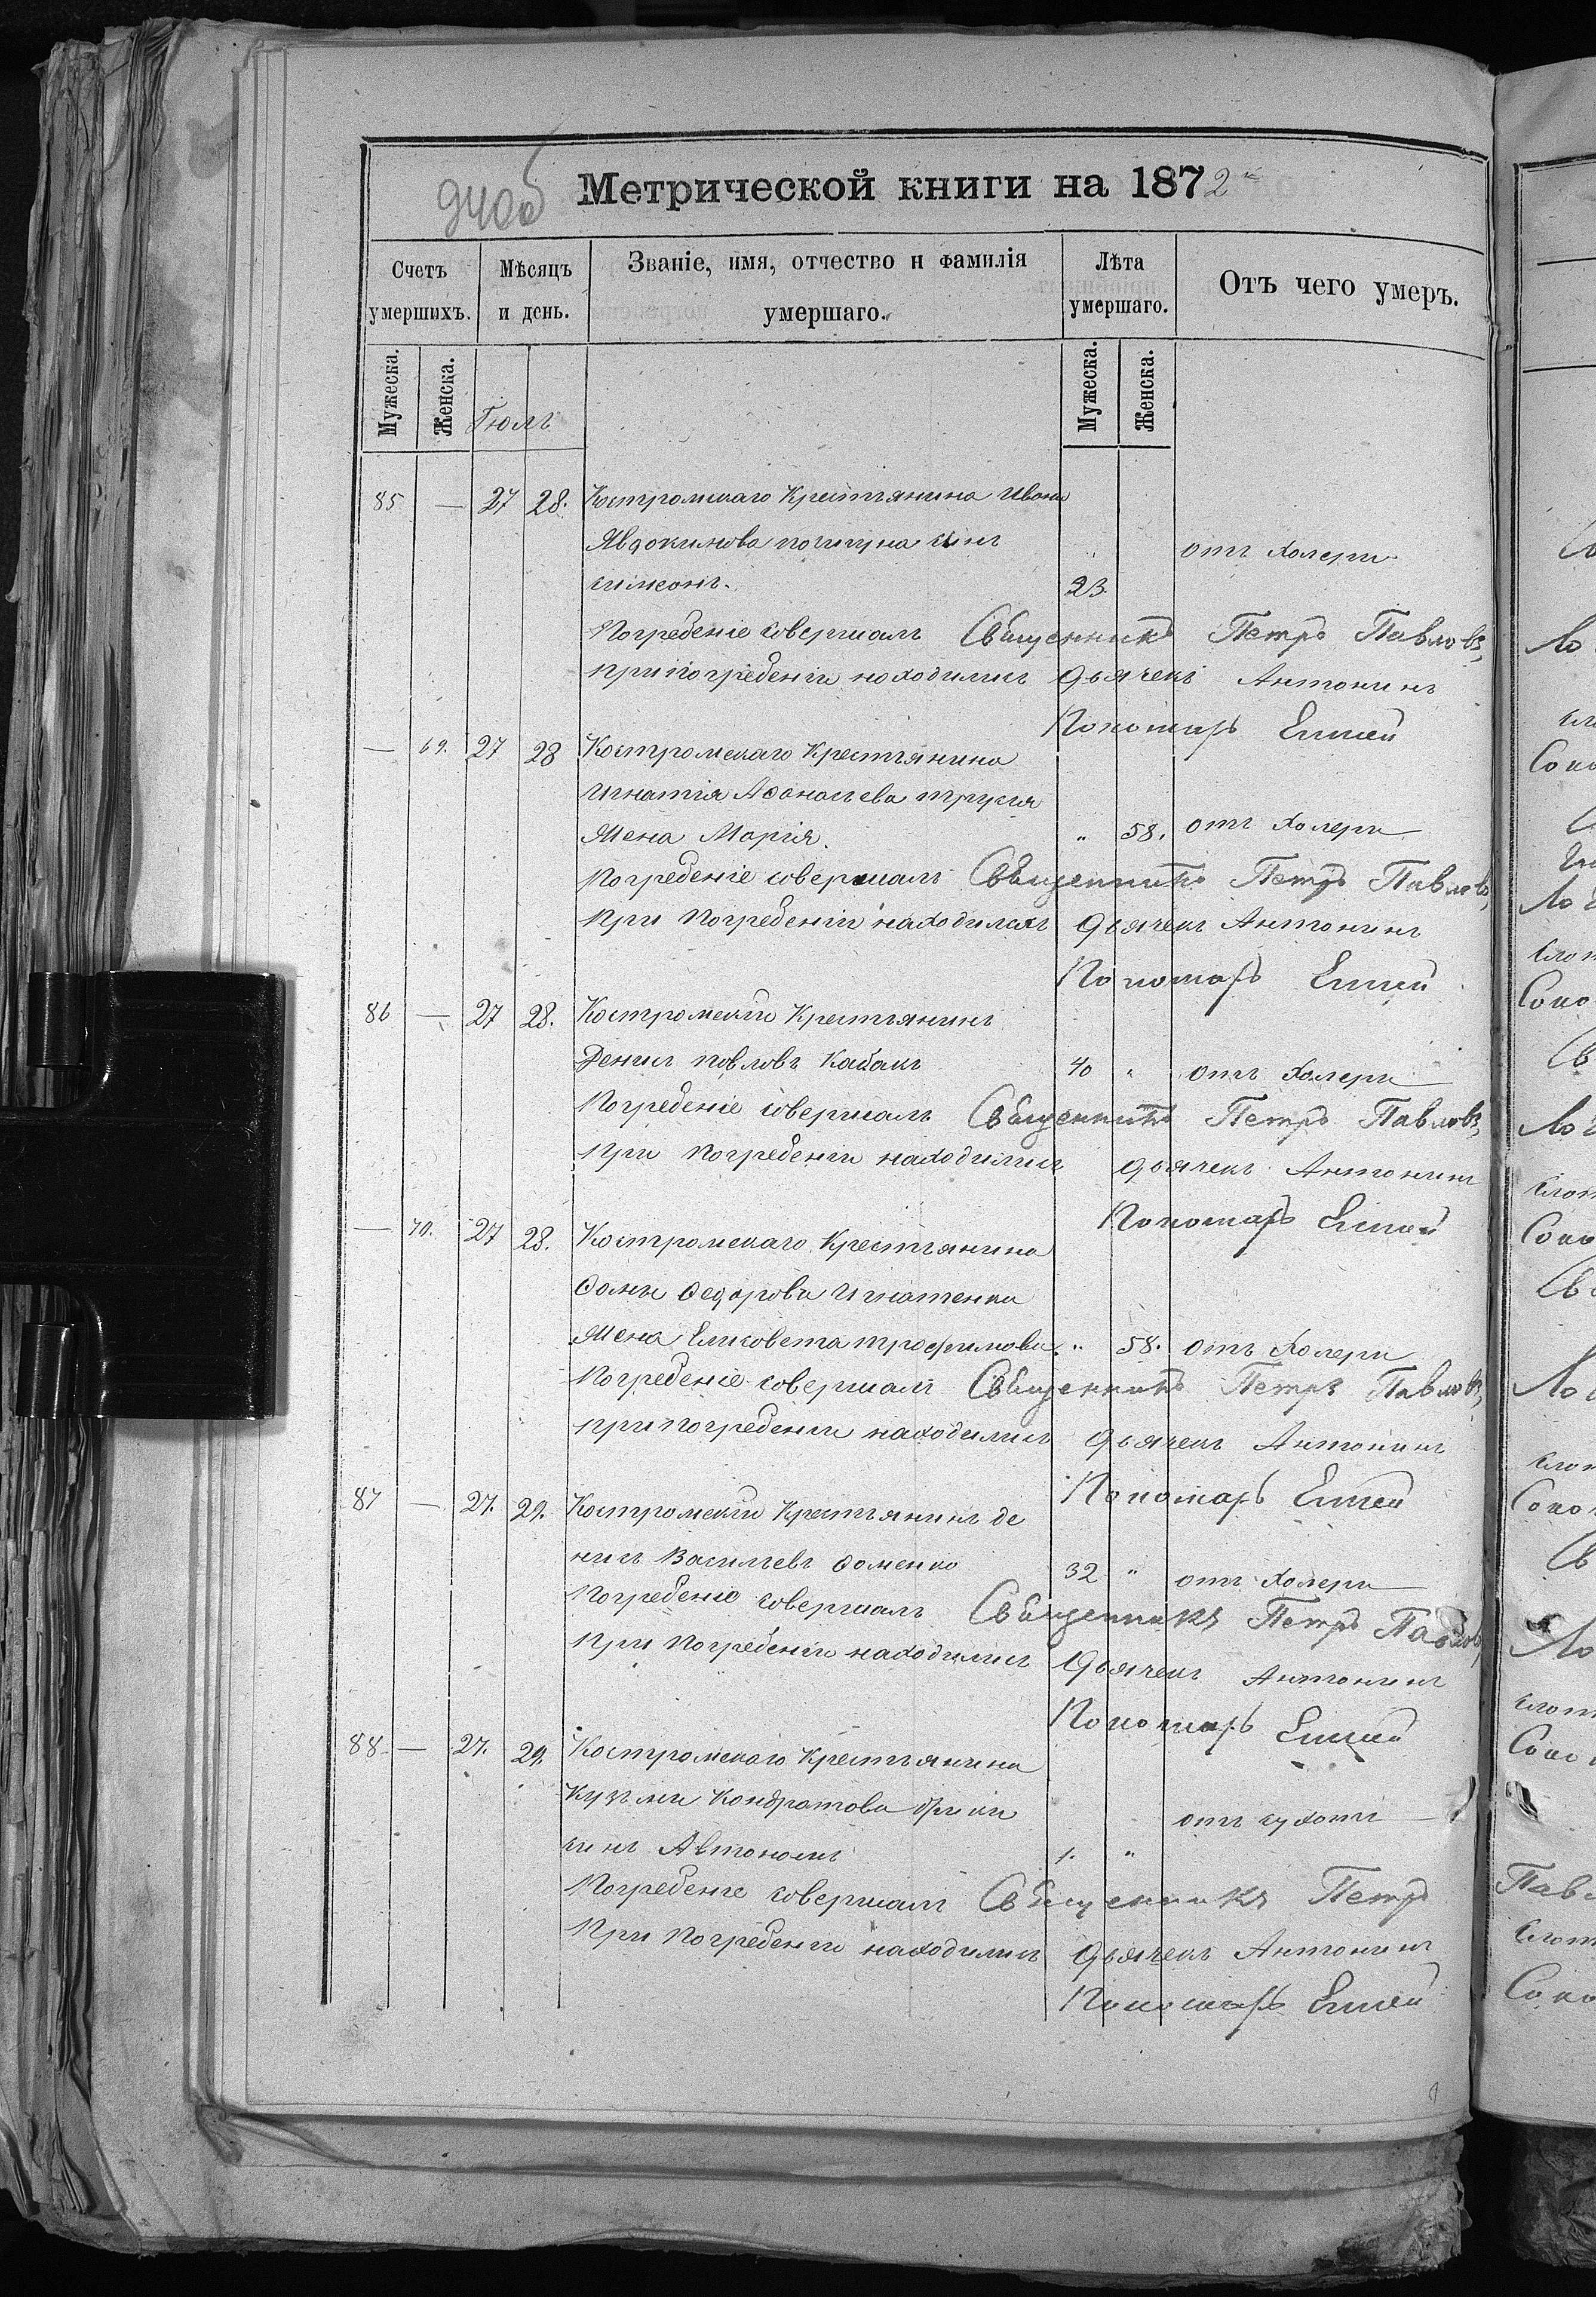 940об
Метрической книги на 1872
Счетъ умершихъ.
Мѣсяцъ и день.
Званіе, имя, отчество и фамилія умершаго.
Лѣта умершаго.
Отъ чего умеръ.
Мужеска. Женска. Іюль Мужеска. Женска.
85 — 27 28. Костромскаго Крестьянина Ивана
Явдокимова сынъ отъ холеры
симеонъ. 23.
Погребеніе совершалъ Священникъ Петръ Павловъ,
при погребеніи находились дьячекъ Антонинъ
Пономарь
— 69. 27 28 Костромскаго Крестьянина
Игнатія Аѳанасьева
Жена Марія. " 58. отъ холеры
Погребеніе совершалъ Священникъ Петръ Павловъ,
При Погребеніи находились дьячекъ Антонинъ
Пономарь
86 — 27 28. Костромскій Крестьянинъ
Денис Повловъ Кабакъ 40 " отъ холеры
Погребеніе совершалъ Священникъ Петръ Павловъ,
При Погребеніи находились дьячекъ Антонинъ
Пономарь
— 70. 27 28. Костромскаго Крестьянина
Ѳомы Ѳедорова Игнатенка
Жена Елисовета трофимова. " 58. отъ холеры
Погребеніе совершалъ Священникъ Петръ Павловъ,
при погребеніи находились дьячекъ Антонинъ
Пономарь
87 — 27. 29. Костромскій Крестьянинъ де
нисъ Васильевъ Ѳоменко 32 " отъ холеры
Погребеніе совершалъ Священникъ Петръ Павловъ
При Погребеніи находились дьячекъ Антонинъ
Пономарь
88 — 27. 29. Костромскаго Крестьянина
Кузьмы Кондратова отъ сухоты
сынъ Автономъ 1. "
Погребеніе совершалъ Священникъ Петръ
При Погребеніи находились дьячекъ Антонинъ
Пономарь